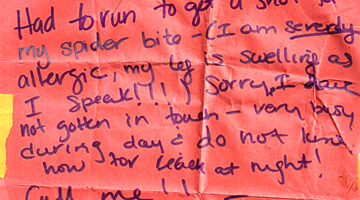 Had to run to get a shot for
my spider bite - (I am severly
allergic, my leg is swelling as
I speak!!!) Sorry, I have
not gotten in touch - very busy
during day & do not know
how for at night!
Call me!!